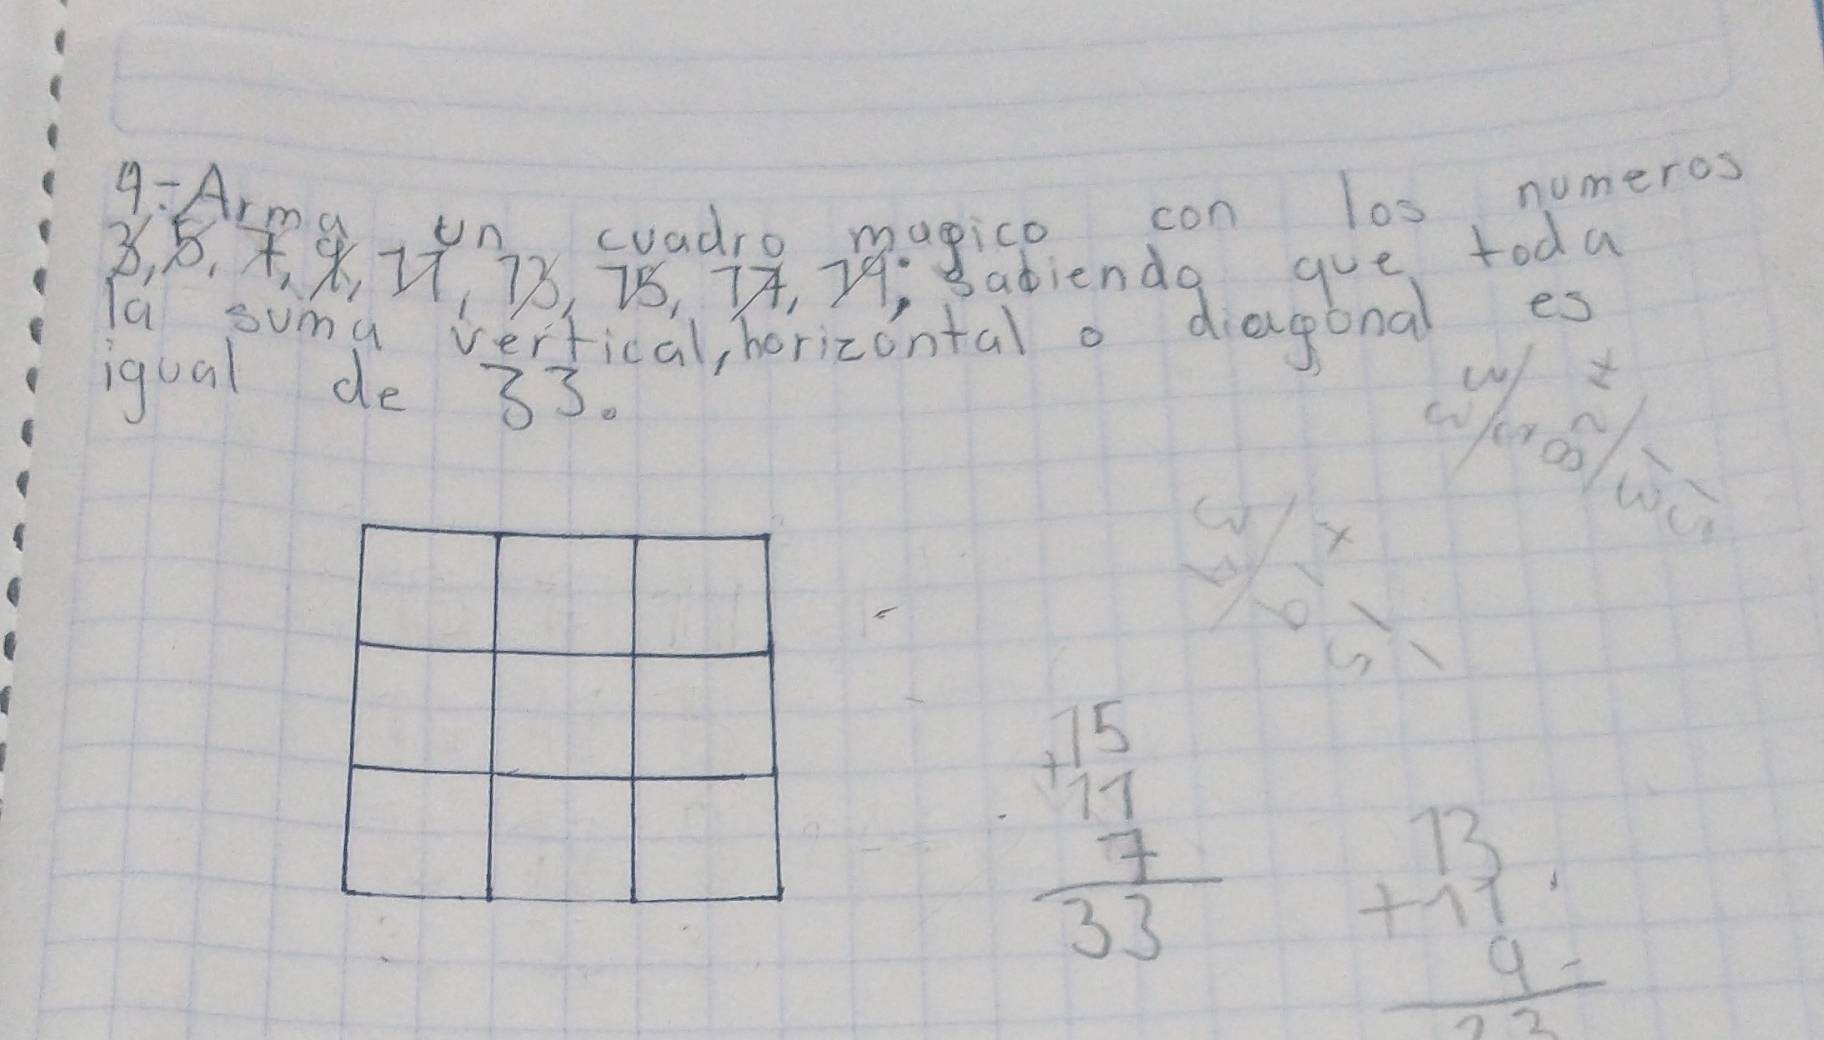 9.- Arma un cuadro magico con los numeros
3, 5, 7, 9, 11, 13, 15, 17, 19; Sabiendo que toda
la suma vertical, horizontal o diagonal es
igual de 33.
15
+11
7
33
13
+11
9